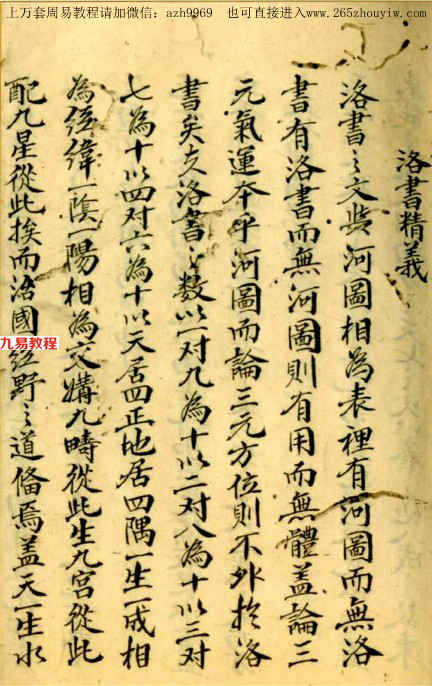 上万套周易教程请加微信：azh9969 也可直接进入www.265zhouyiw.com
洛書精義
洛書之文與河圖相為表裡有河圖而無洛
書有洛書而無河圖則有用而無體蓋論三
元氣運本乎河圖而論三元方位則不外於洛
書矣夫洛書之數以一对九為十以二对八為十以三对
七為十以四对六為十以天居四正地居四隅一生一成相
為经緯一陰一陽相為交媾九疇從此生九宮從此
配九星從此挨而治國经野之道俻焉盖天一生水
九易教程